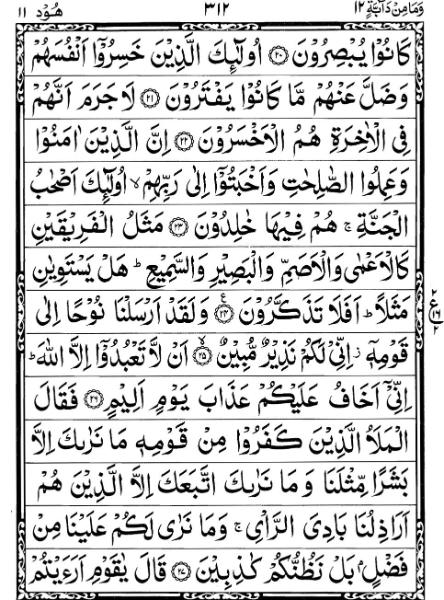 وَمَا مِنْ دَآبَّةٍ ١٢ ٣١٢ هُوْد ١١
كَانُوْا يُبْصِرُوْنَ ﴿٢٠﴾ اُولٰٓئِكَ الَّذِيْنَ خَسِرُوْٓا اَنْفُسَهُمْ
وَضَلَّ عَنْهُمْ مَّا كَانُوْا يَفْتَرُوْنَ ﴿٢١﴾ لَا جَرَمَ اَنَّهُمْ
فِى الْاٰخِرَةِ هُمُ الْاَخْسَرُوْنَ ﴿٢٢﴾ اِنَّ الَّذِيْنَ اٰمَنُوْا
وَعَمِلُوا الصّٰلِحٰتِ وَاَخْبَتُوْٓا اِلٰى رَبِّهِمْ ۙ اُولٰٓئِكَ اَصْحٰبُ
الْجَنَّةِ ۚ هُمْ فِيْهَا خٰلِدُوْنَ ﴿٢٣﴾ مَثَلُ الْفَرِيْقَيْنِ
كَالْاَعْمٰى وَالْاَصَمِّ وَالْبَصِيْرِ وَالسَّمِيْعِ ؕ هَلْ يَسْتَوِيٰنِ
مَثَلًا ؕ اَفَلَا تَذَكَّرُوْنَ ﴿٢٤﴾ ع وَلَقَدْ اَرْسَلْنَا نُوْحًا اِلٰى
٢ ع ١٦ ٢
قَوْمِهٖٓ ز اِنِّىْ لَكُمْ نَذِيْرٌ مُّبِيْنٌ ﴿٢٥﴾ ۙ اَنْ لَّا تَعْبُدُوْٓا اِلَّا اللّٰهَ ؕ
اِنِّىْٓ اَخَافُ عَلَيْكُمْ عَذَابَ يَوْمٍ اَلِيْمٍ ﴿٢٦﴾ فَقَالَ
الْمَلَاُ الَّذِيْنَ كَفَرُوْا مِنْ قَوْمِهٖ مَا نَرٰىكَ اِلَّا
بَشَرًا مِّثْلَنَا وَمَا نَرٰىكَ اتَّبَعَكَ اِلَّا الَّذِيْنَ هُمْ
اَرَاذِلُنَا بَادِىَ الرَّاْىِ ۚ وَمَا نَرٰى لَكُمْ عَلَيْنَا مِنْ
فَضْلٍۭ بَلْ نَظُنُّكُمْ كٰذِبِيْنَ ﴿٢٧﴾ قَالَ يٰقَوْمِ اَرَءَيْتُمْ